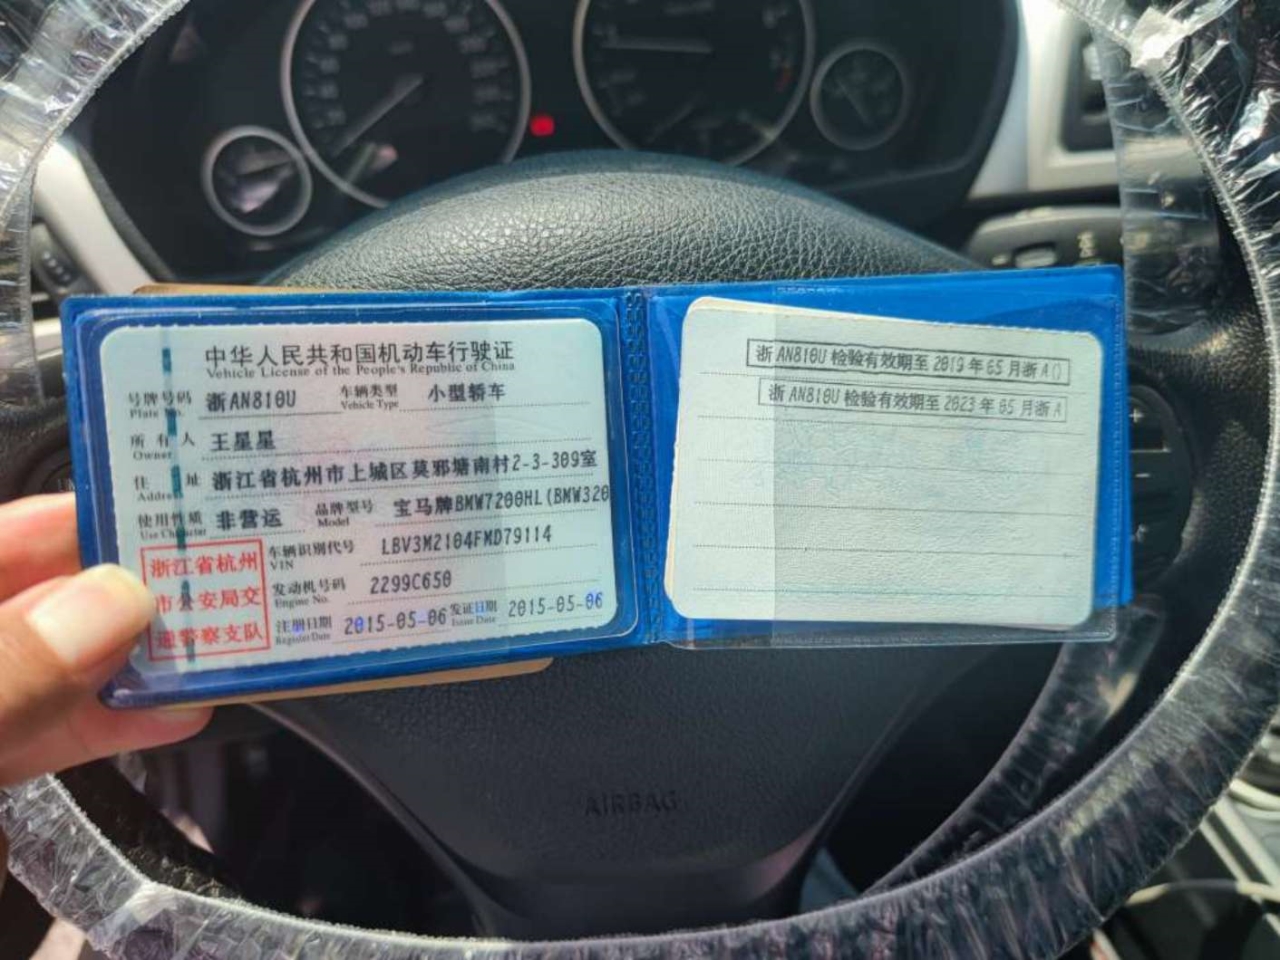 中华人民共和国机动车行驶证
Vehicle License of the People's Republic of China
号牌号码 浙AN810U 车辆类型 小型轿车
Plate No. Vehicle Type
所有人 王星星
Owner
住址 浙江省杭州市上城区莫邪塘南村2-3-309室
Address
使用性质 非营运 品牌型号 宝马牌BMW7200HL(BMW320
Use Character Model
浙江省杭州
市公安局交
通警察支队
车辆识别代号 LBV3M2104FMD79114
VIN
发动机号码 2299C650
Engine No.
注册日期 2015-05-06 发证日期 2015-05-06
Register Date Issue Date
浙AN810U 检验有效期至 2019 年 05 月浙A()
浙AN810U 检验有效期至 2023 年 05 月浙A
AIRBAG